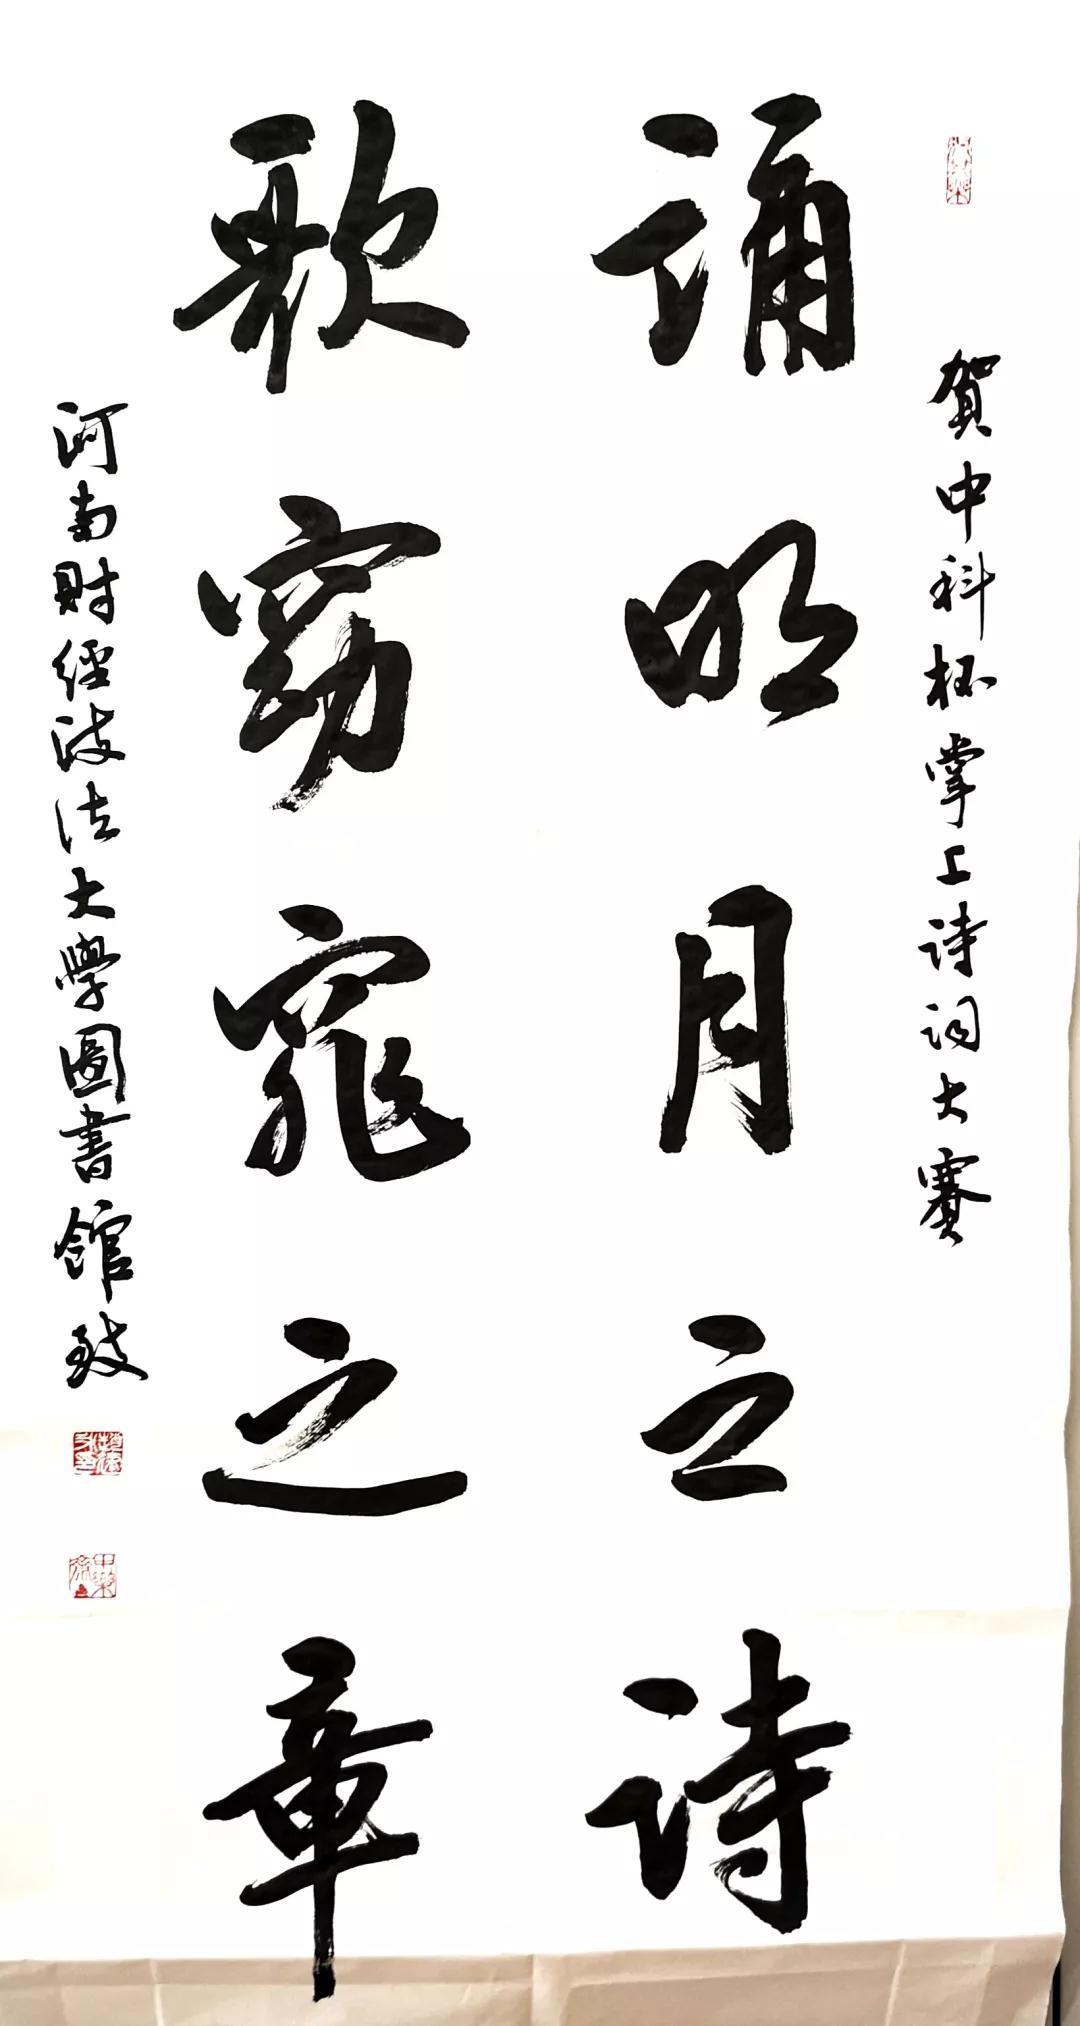 賀中科杯掌上诗词大賽
诵明月之诗
歌窈窕之章
河南财經政法大學圖書館致